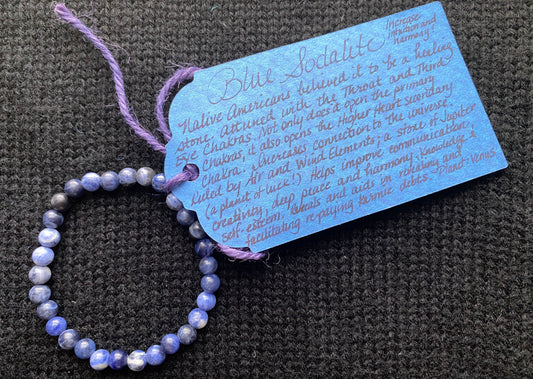 Blue Sodalite
Increase
intuition and
harmony!
Native Americans believed it to be a healing
stone. Attuned with the Throat and Third
Eye Chakras. Not only does it open the primary
Chakras, it also opens the Higher Heart secondary
Chakra. Increases connection to the universe.
Ruled by Air and Wind Elements; a stone of Jupiter
(a planet of luck!) Helps improve communication,
creativity, deep peace and harmony, knowledge &
self-esteem. Reveals and aids in resolving and
facilitating re-paying karmic debts. Planet: Venus